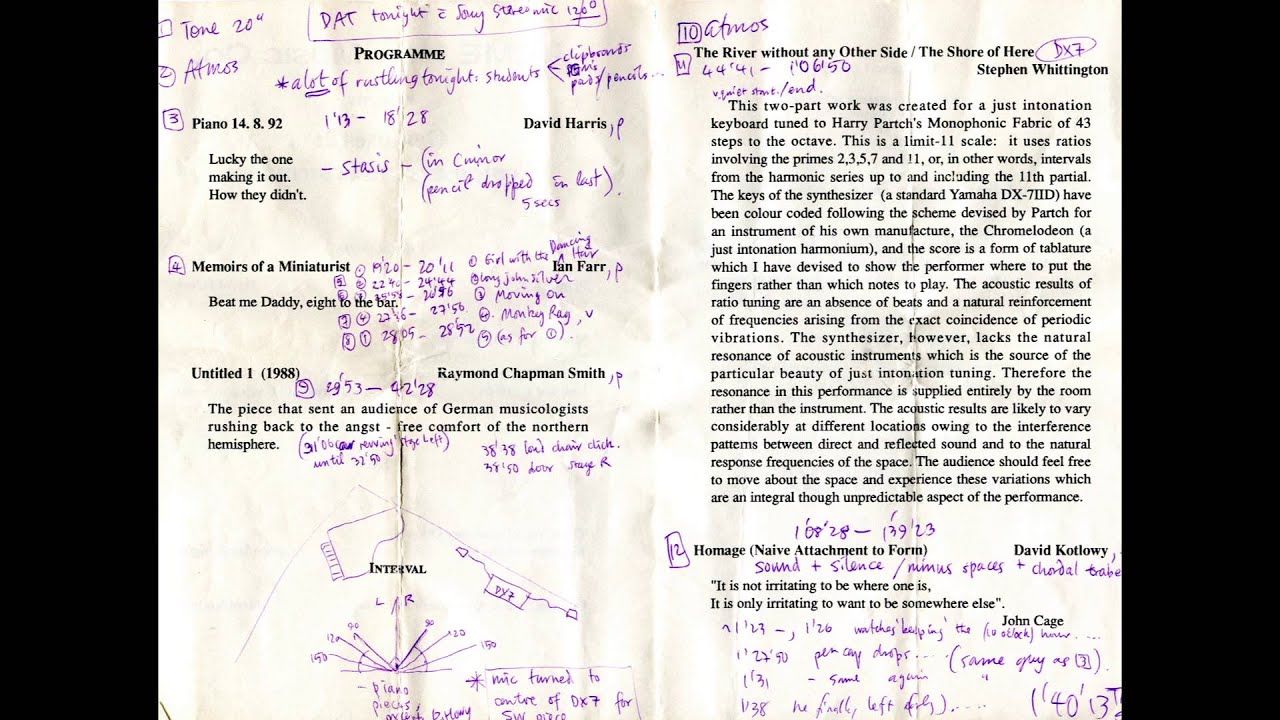 1 Tone 20"
DAT tonight = Sony Stereo mic 120°
PROGRAMME
2 Atmos
* a lot of rustling tonight: students
clipboards
pens
pads/pencils...
3 Piano 14. 8. 92 1'13 - 18'28 David Harris, p
Lucky the one
making it out.
How they didn't.
- stasis - (in C minor
(pencil dropped in last).
5 secs
4 Memoirs of a Miniaturist ① 19'20 - 20'11 ① Girl with the Dancing Hair Ian Farr, p
5 ② 22'40 - 24'44 ② Long John Silver
Beat me Daddy, eight to the bar.
6 ③ ③ Moving On
7 ④ - 27'56 ④ Monkey Rag, v
8 ① 28'05 - 28'52 ⑤ (as for ①).
Untitled 1 (1988) Raymond Chapman Smith, p
9 29'53 - 42'28
The piece that sent an audience of German musicologists
rushing back to the angst - free comfort of the northern
hemisphere. (31'06 car revving stage left)
until 32'50
38'38 loud chair click.
38'50 door stage R
INTERVAL
DX7
L R
90 90
120 120
150 150
- piano
pieces
* mic turned to
centre of DX7 for
SW piece
10 atmos
The River without any Other Side / The Shore of Here DX7
11 44'41 - 1'06'50 Stephen Whittington
v. quiet start/end.
This two-part work was created for a just intonation
keyboard tuned to Harry Partch's Monophonic Fabric of 43
steps to the octave. This is a limit-11 scale: it uses ratios
involving the primes 2,3,5,7 and 11, or, in other words, intervals
from the harmonic series up to and including the 11th partial.
The keys of the synthesizer (a standard Yamaha DX-7IID) have
been colour coded following the scheme devised by Partch for
an instrument of his own manufacture, the Chromelodeon (a
just intonation harmonium), and the score is a form of tablature
which I have devised to show the performer where to put the
fingers rather than which notes to play. The acoustic results of
ratio tuning are an absence of beats and a natural reinforcement
of frequencies arising from the exact coincidence of periodic
vibrations. The synthesizer, however, lacks the natural
resonance of acoustic instruments which is the source of the
particular beauty of just intonation tuning. Therefore the
resonance in this performance is supplied entirely by the room
rather than the instrument. The acoustic results are likely to vary
considerably at different locations owing to the interference
patterns between direct and reflected sound and to the natural
response frequencies of the space. The audience should feel free
to move about the space and experience these variations which
are an integral though unpredictable aspect of the performance.
1'08'28 - 1'39'23
12 Homage (Naive Attachment to Form) David Kotlowy,
sound + silence / minus spaces + chordal
"It is not irritating to be where one is,
It is only irritating to want to be somewhere else".
John Cage
~1'23 -, 1'26 watches 'beeping' the (10 o'clock) hour....
1'27'50 pen cap drops.... (same guy as 3).
1'31 - same again "
1'38 he finally, left
(1'40'13